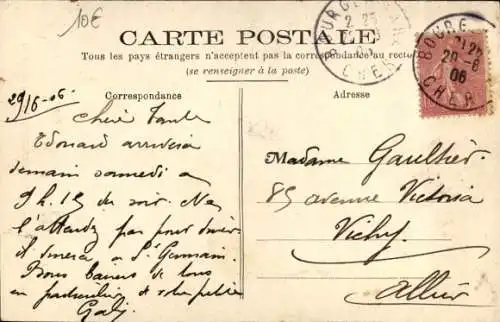 10€
CARTE POSTALE
Tous les pays étrangers n'acceptent pas la correspondance au recto
(se renseigner à la poste)
Correspondance
Adresse
BOURGES
CHER
BOURG
20-6
06
CHER
29/6-06
Chère Tante
Edouard arrivera
demain samedi a
9h.15 du soir. Ne
l'attendez pas pour diner
il dinera a St Germain.
Bons baisers de tous
en particulier et votre petite
Gaby
Madame Gaultier
85 avenue Victoria
Vichy
Allier